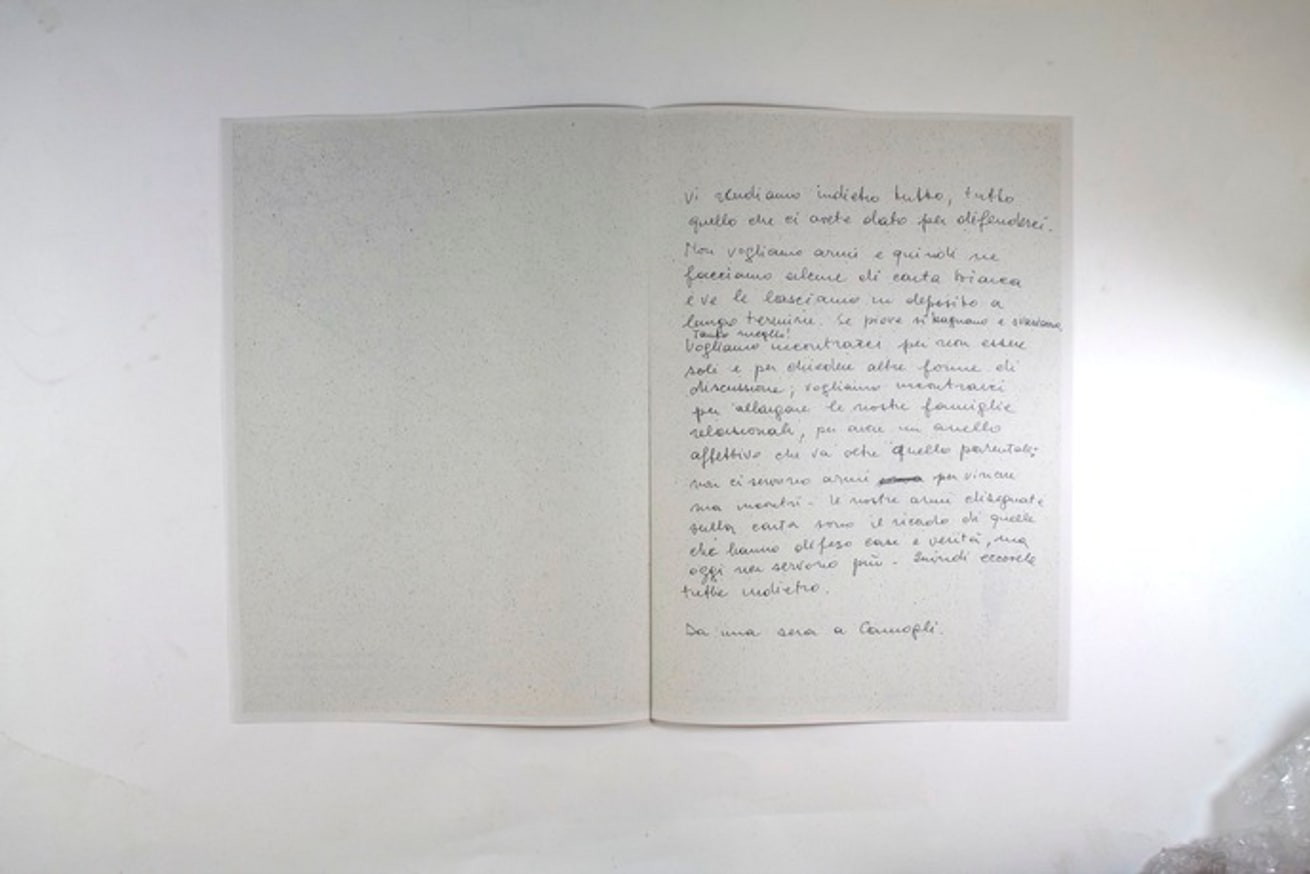 Vi rendiamo indietro tutto, tutto
quello che ci avete dato per difenderci.
Non vogliamo armi e quindi ne
facciamo alcune di carta bianca
e ve le lasciamo in deposito a
lungo termine. Se piove si bagnano e
Tanto meglio!
Vogliamo incontrarci per non essere
soli e per chiedere altre forme di
discussione; vogliamo incontrarci
per allargare le nostre famiglie
relazionali, per avere un anello
affettivo che va oltre quello parentale;
non ci servono armi per vincere
ma incontri. Le nostre armi disegnate
sulla carta sono il ricordo di quelle
che hanno difeso case e verità, ma
oggi non servono più. Quindi eccovele
tutte indietro.
Da una sera a Camogli.